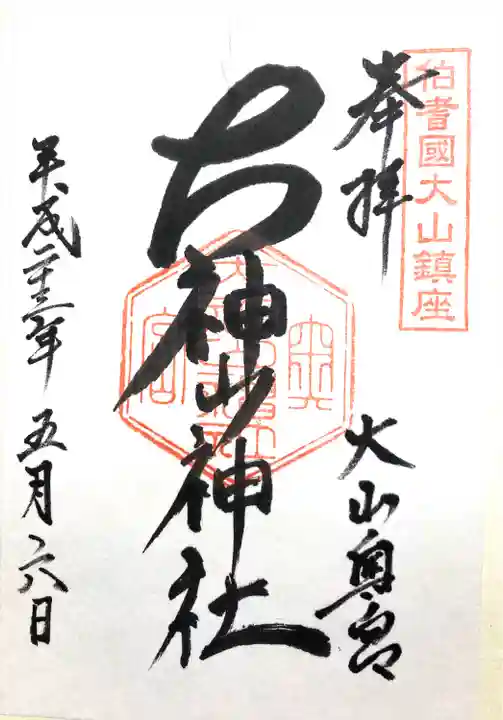 伯耆國大山鎮座
奉拝
大山奥宮
大神山神社
平成二十三年五月六日
奥宮